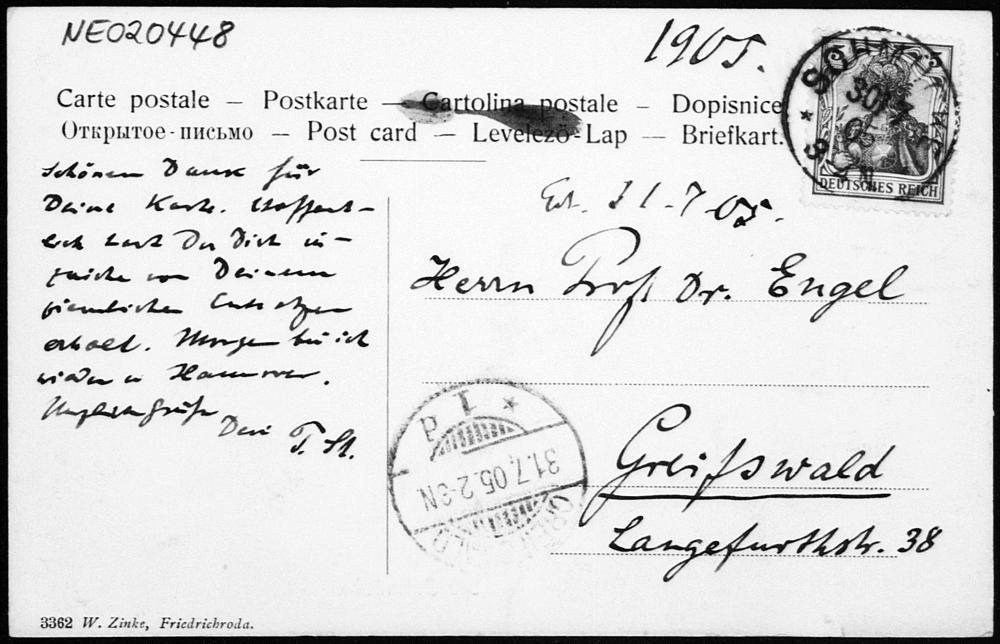 NE020448
1905.
Carte postale – Postkarte – Cartolina postale – Dopisnice
Открытое-письмо — Post card — Levelező-Lap — Briefkart.
DEUTSCHES REICH
schönen Dank für
Deine Karte. Hoffent-
lich hast Du Dich in-
zwischen von Deinem
ziemlichen Entsetzen
erholt. Morgen bin ich
wieder in Hannover.
Herzliche Grüße
Dein T. St.
31.7.05.
Herrn Prof Dr. Engel
Greifswald
Langefuhrstr. 38
31.7.05.2-3N
3362 W. Zinke, Friedrichroda.